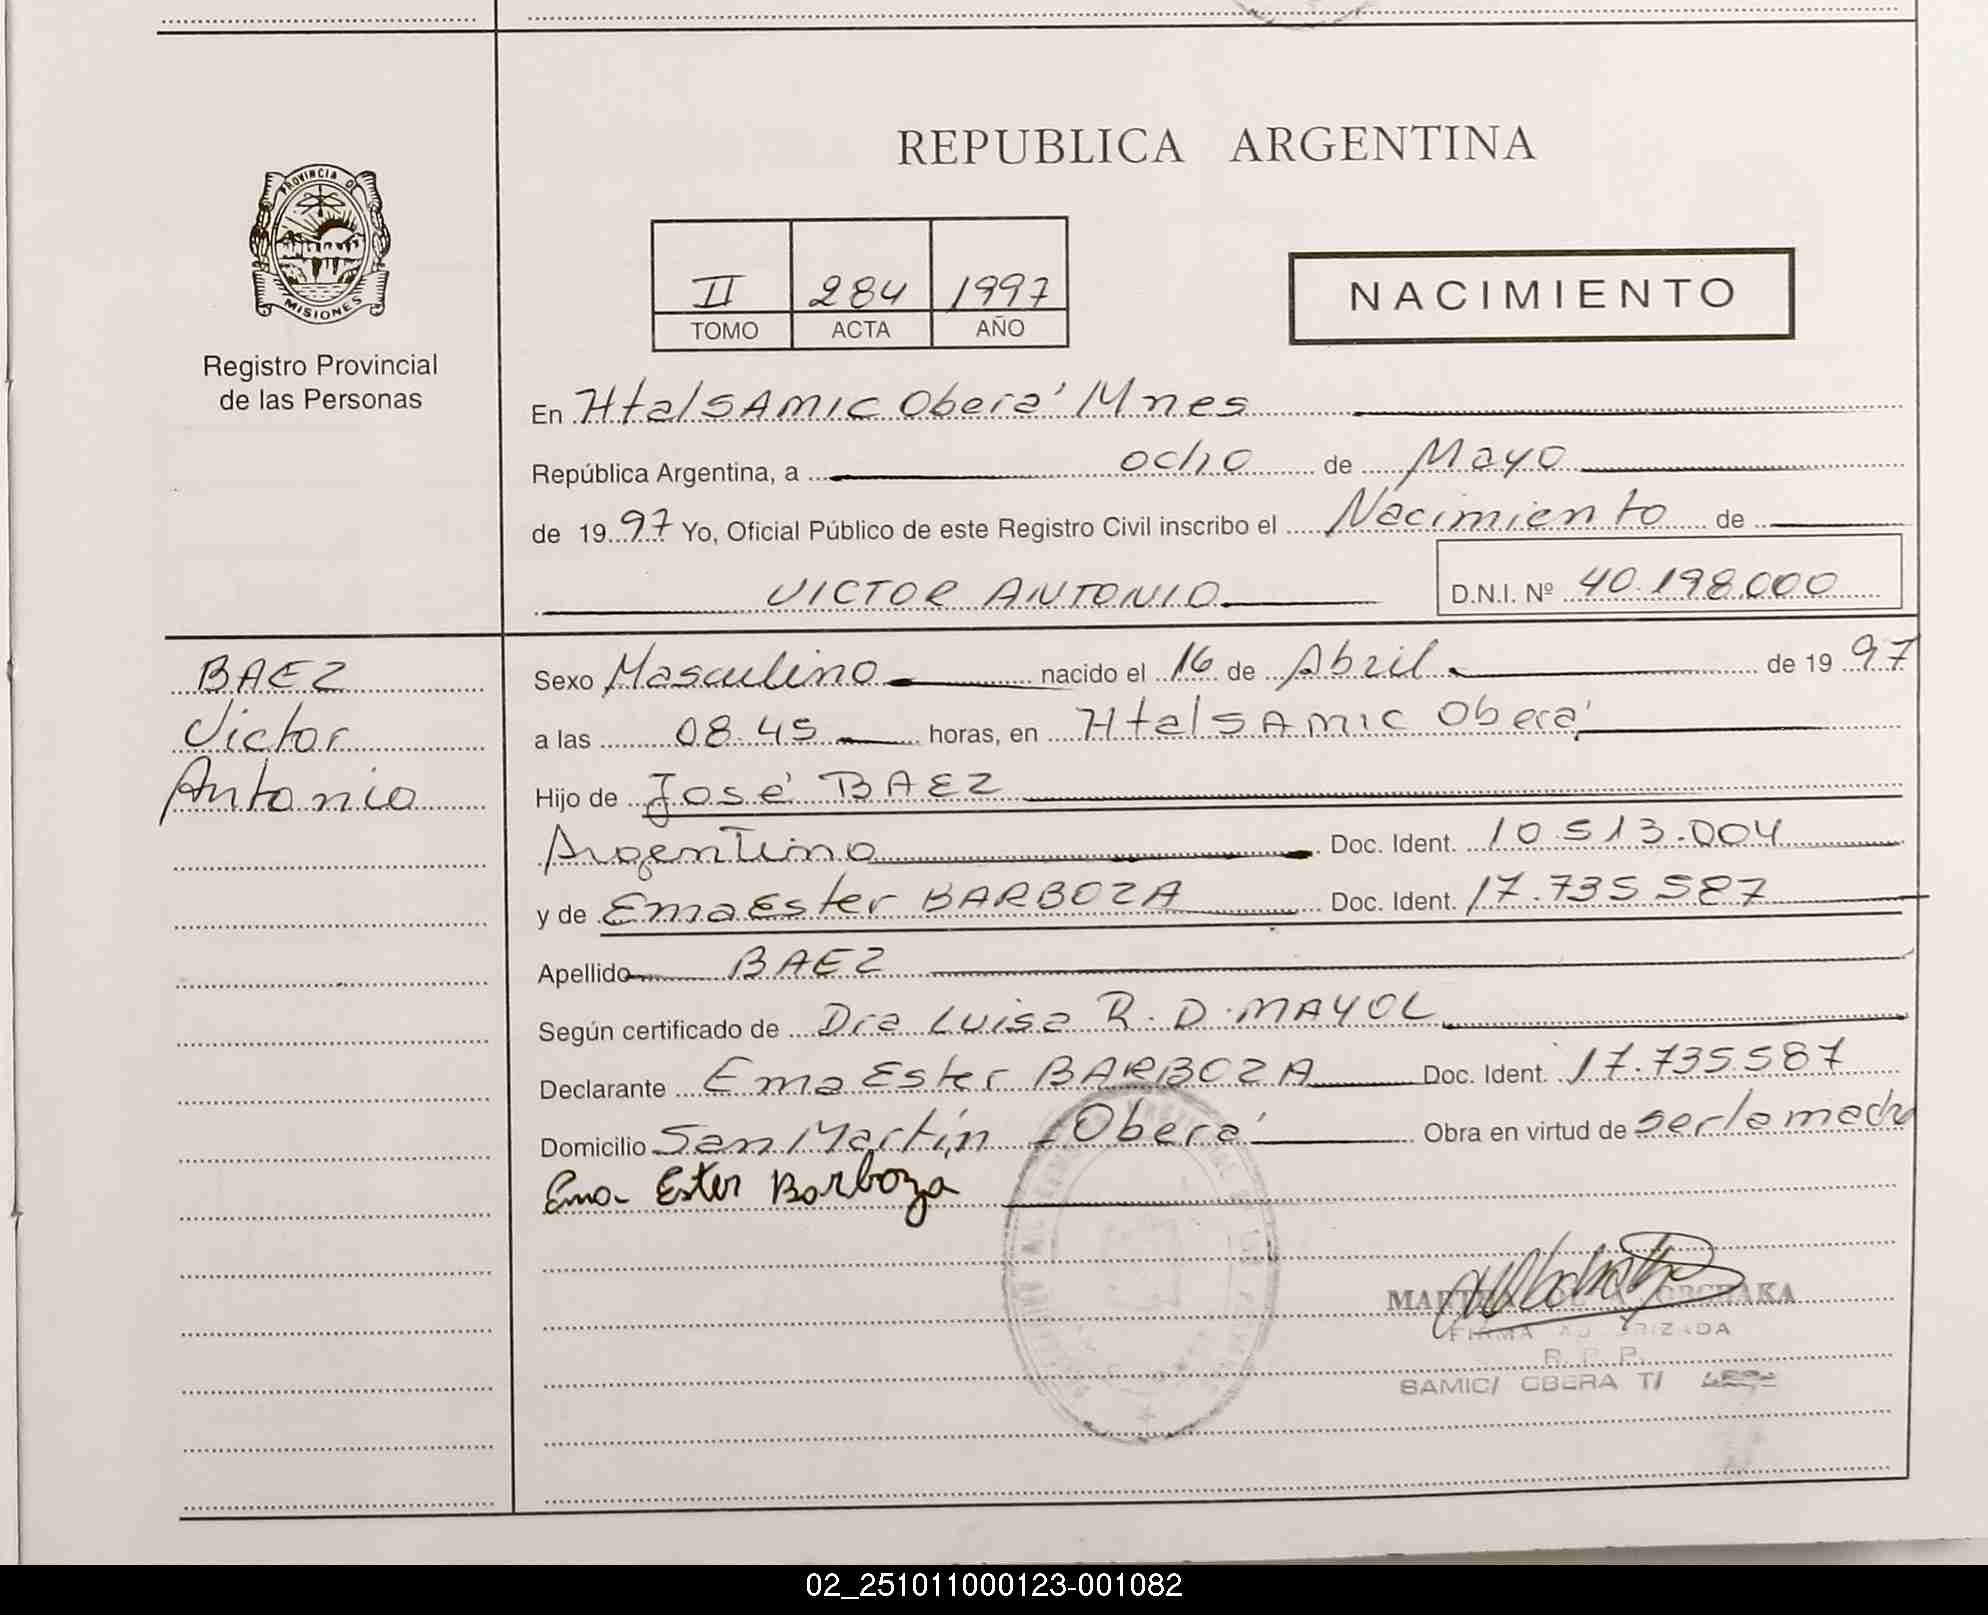 REPUBLICA ARGENTINA
PROVINCIA DE
MISIONES
Registro Provincial
de las Personas
II 284 1997
TOMO ACTA AÑO
NACIMIENTO
En Htal SAMIC Oberá Mnes
República Argentina, a ocho de Mayo
de 1997 Yo, Oficial Público de este Registro Civil inscribo el Nacimiento de
VICTOR ANTONIO D.N.I. Nº 40.198.000
BAEZ
Victor
Antonio
Sexo Masculino nacido el 16 de Abril de 1997
a las 08.45 horas, en Htal SAMIC Oberá
Hijo de José BAEZ
Argentino Doc. Ident. 10.513.004
y de Ema Ester BARBOZA Doc. Ident. 17.735.587
Apellido BAEZ
Según certificado de Dra Luisa R. D. MAYOL
Declarante Ema Ester BARBOZA Doc. Ident. 17.735.587
Domicilio San Martín - Oberá Obra en virtud de ser la madre
Ema Ester Barboza
FIRMA AUTORIZADA
R. P. P.
SAMIC/ OBERA T/
02_251011000123-001082